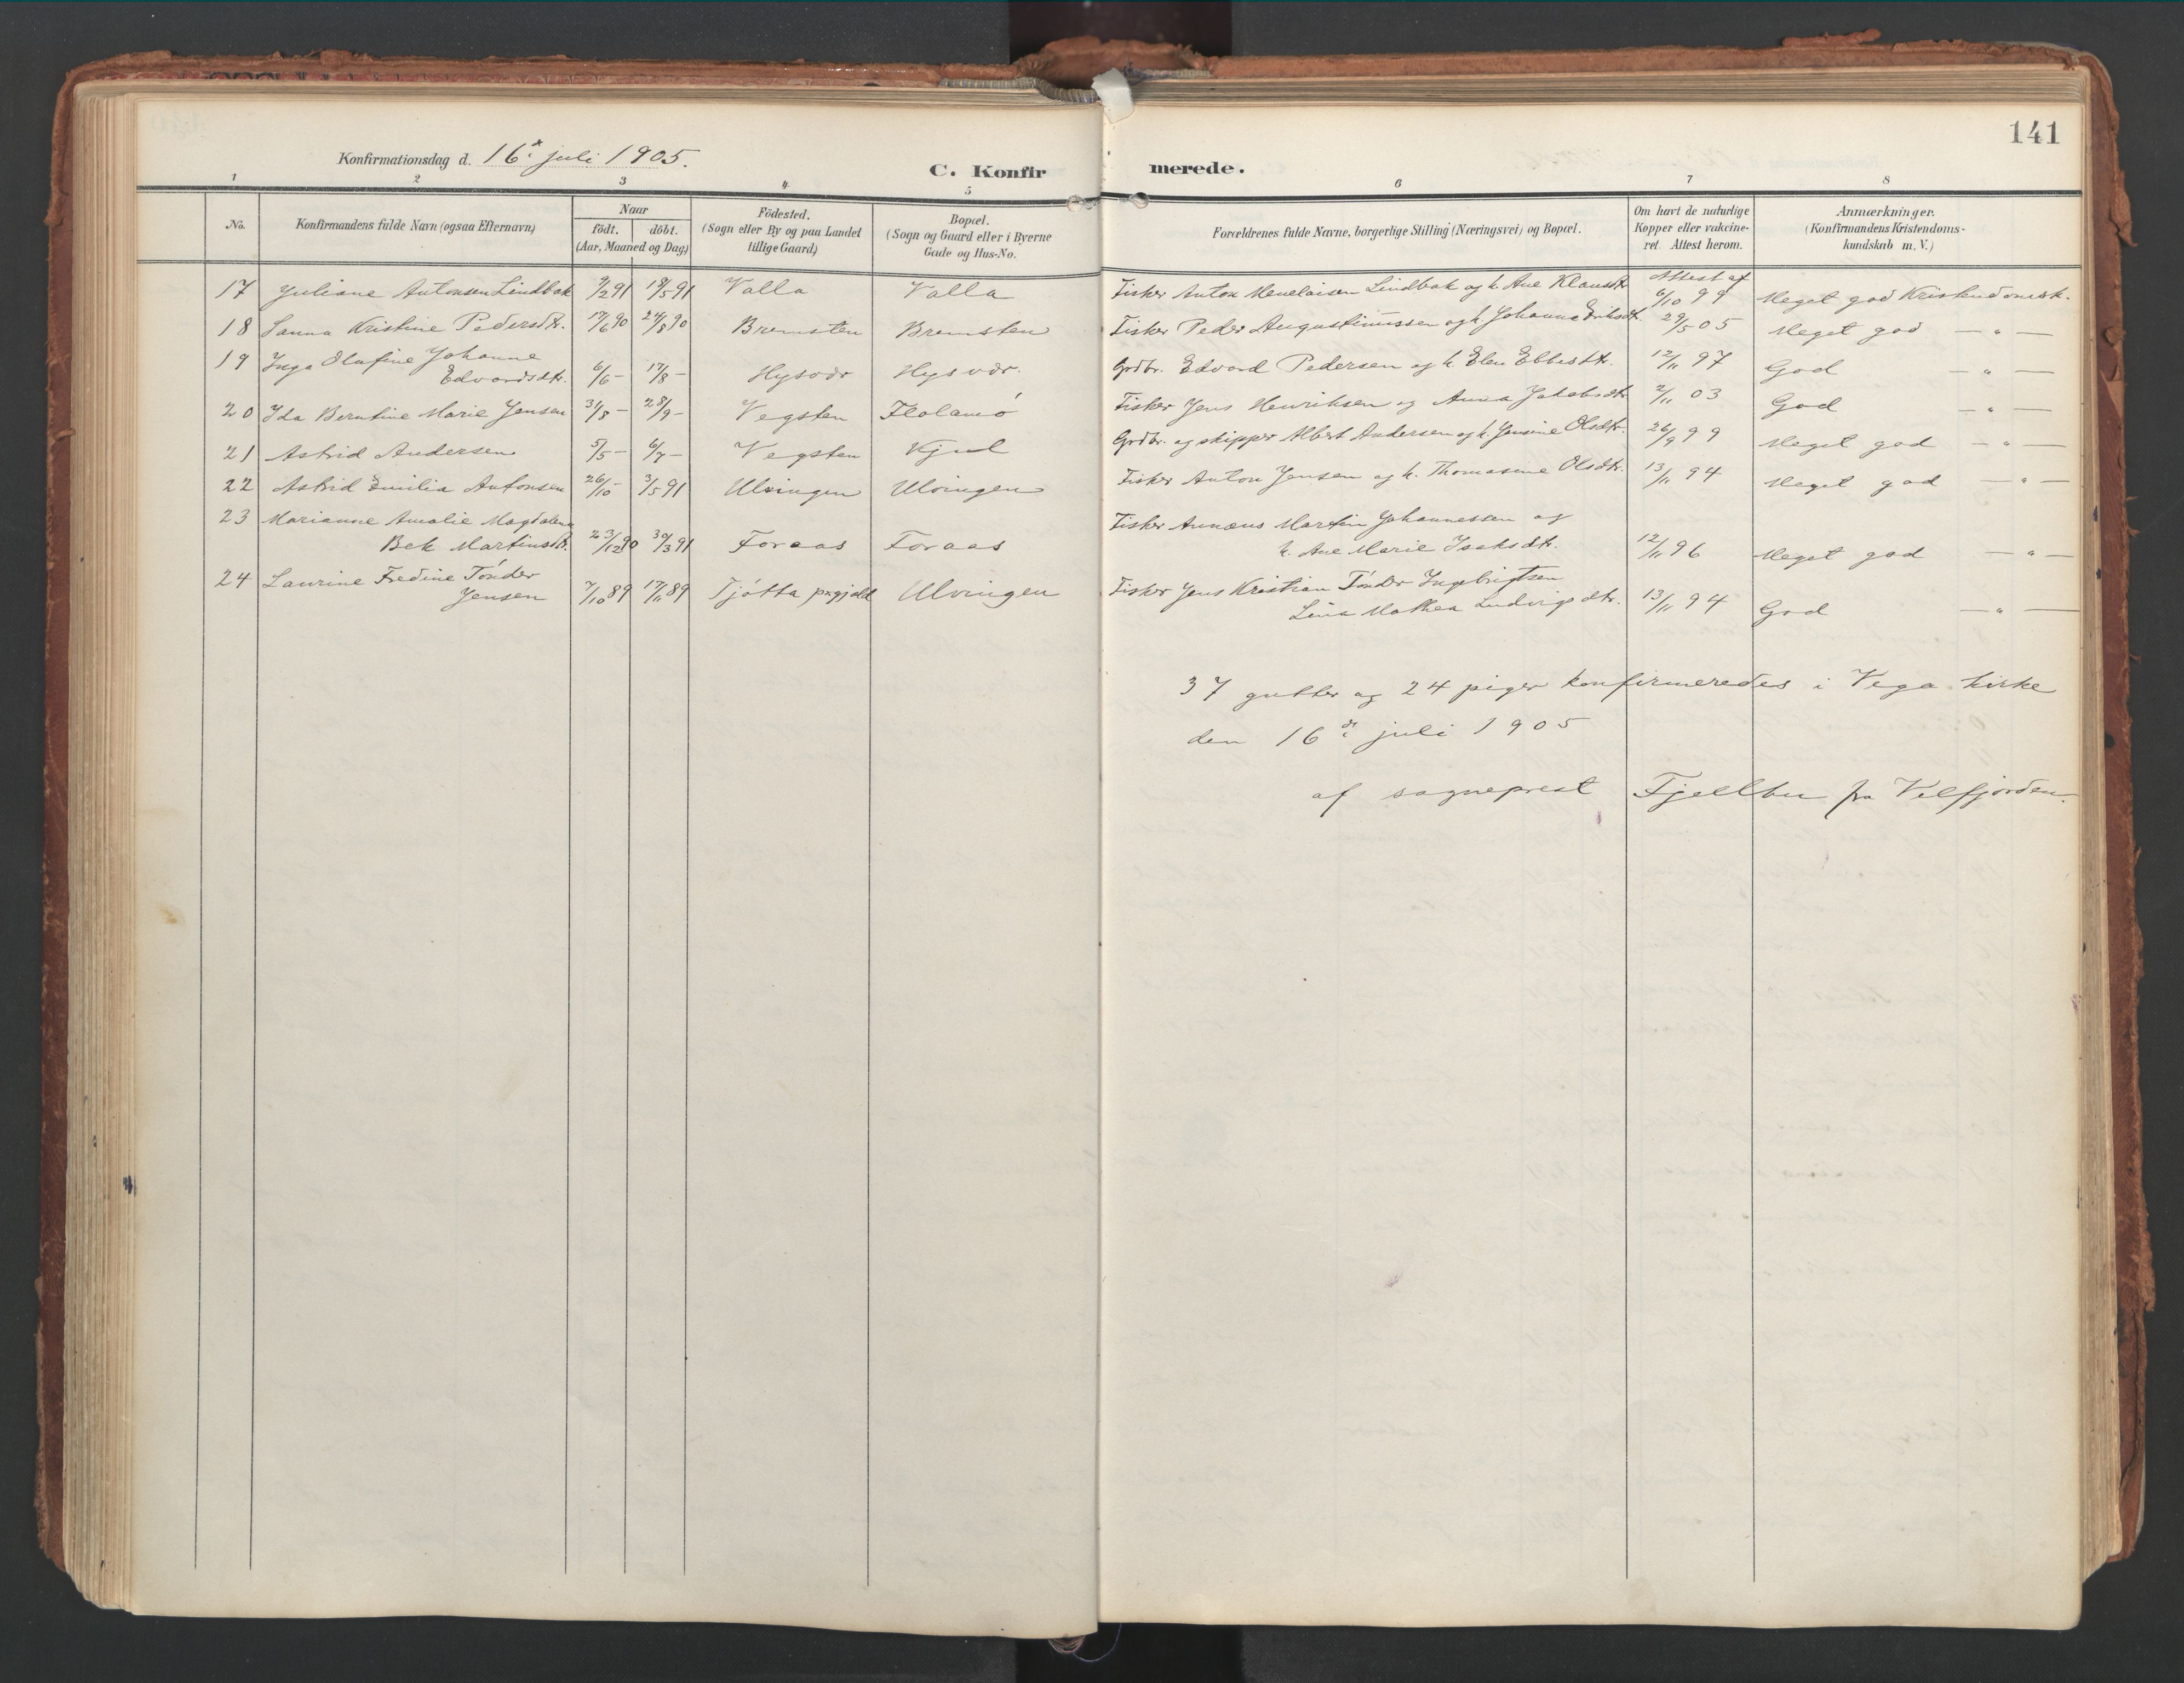 141
Konfirmationsdag d. 16de juli 1905.
C. Konfirmerede.
1 2 3 4 5 6 7 8
No.
Konfirmandens fulde Navn (ogsaa Efternavn)
Naar
födt. döbt.
(Aar, Maaned og Dag)
Födested.
(Sogn eller By og paa Landet
tillige Gaard)
Bopæl.
(Sogn og Gaard eller i Byerne
Gade og Hus-No.
Forældrenes fulde Navne, borgerlige Stilling (Næringsvei) og Bopæl.
Om havt de naturlige
Kopper eller vakcine-
ret. Attest herom.
Anmærkninger.
(Konfirmandens Kristendoms-
kundskab m. V.)
Attest af
17 Juliane Antonsen Lindbak 9/2 91 18/5 91 Valla Valla Fisker Anton Menelaisen Lindbak og h. Ane Klausdtr. 6/10 99 Meget god Kristendomsk.
18 Sanna Kristine Pedersdtr. 17/6 90 24/8 90 Bremsten Bremsten Fisker Peder Augustinussen og h. Johanna Eriksdtr. 29/5 05 Meget god — " —
19 Inga Olufine Johanne
Edvardsdtr. 6/6 – 17/8 – Hysvær Hysvær. Grdbr. Edvard Pedersen og h. Elen Ebbesdtr. 12/11 97 God — " —
20 Ida Berntine Marie Jensen 31/8 – 28/9 – Vegsten Flolamö Fisker Jens Henriksen og Anna Jakobsdtr. 2/11 03 God — " —
21 Astrid Andersen 5/5 – 6/7 – Vegsten Kjul Grdbr. og skipper Albert Andersen og h. Jensine Olsdtr. 26/9 99 Meget god — " —
22 Astrid Emilia Antonsen 26/10 – 3/5 91 Ulvingen Ulvingen Fisker Anton Jensen og h. Thomasine Olsdtr. 13/11 94 Meget god — " —
23 Marianne Amalie Magdalena Fisker Annæus Martin Johannessen og
Bek Martinsdtr. 23/12 90 30/3 91 Foraas Foraas h. Ane Marie Isaksdtr. 12/11 96 Meget god — " —
24 Laurine Fredine Tönder Fisker Jens Kristian Tönder Ingebrigtsen
Jensen 7/10 89 17/11 89 Tjötta prgjeld Ulvingen Lina Mathea Ludvigsdtr. 13/11 94 God — " —
37 gutter og 24 piger konfirmeredes i Vega kirke
den 16de juli 1905
af sogneprest Fjellbu fra Velfjorden.